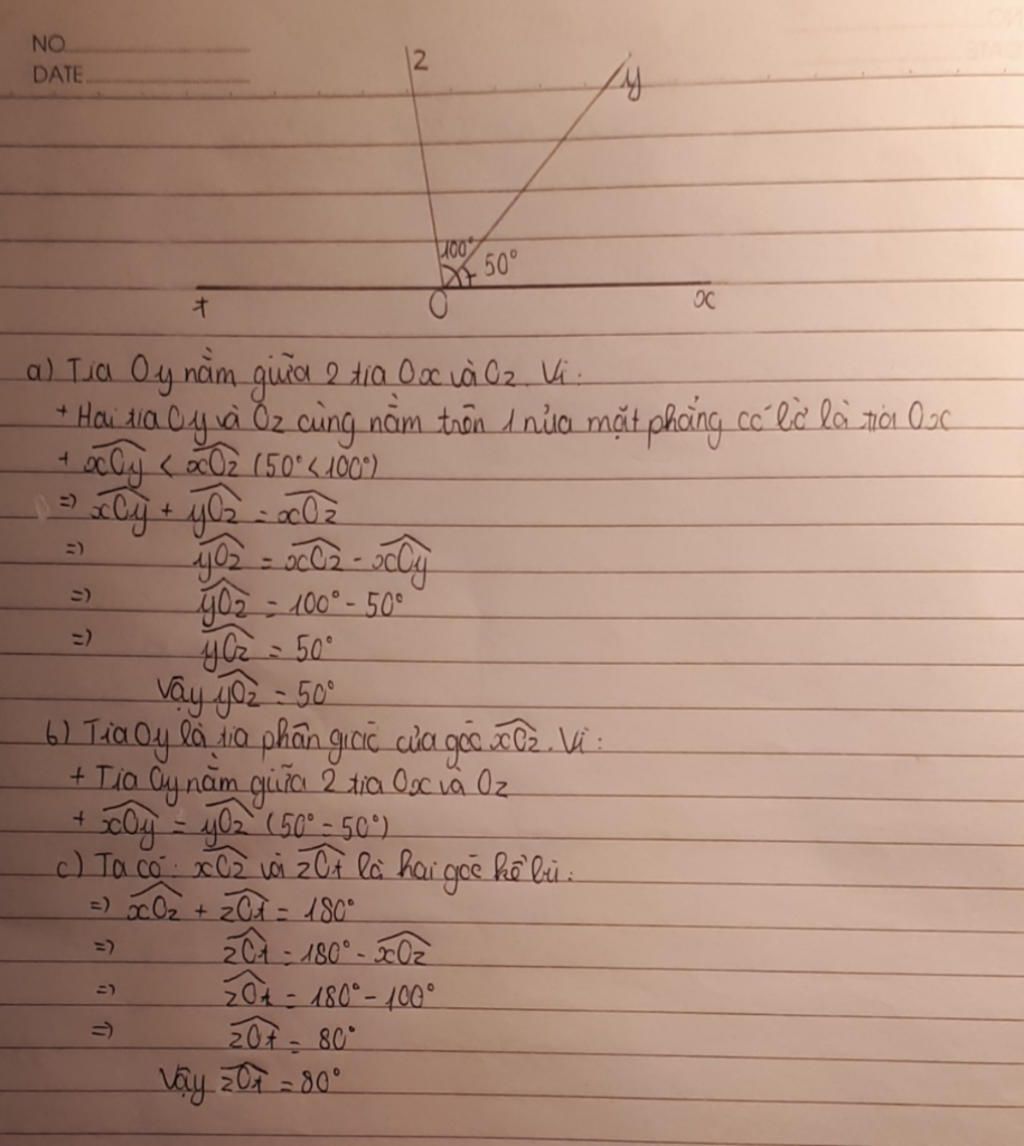 NO
DATE
z
y
100°
50°
t
O
x
a) Tia Oy nằm giữa 2 tia Ox và Oz. Vì:
+ Hai tia Oy và Oz cùng nằm trên 1 nửa mặt phẳng có bờ là tia Ox
+ xOy < xOz (50° < 100°)
=> xOy + yOz = xOz
=> yOz = xOz - xOy
=> yOz = 100° - 50°
=> yOz = 50°
Vậy yOz = 50°
b) Tia Oy là tia phân giác của góc xOz. Vì:
+ Tia Oy nằm giữa 2 tia Ox và Oz
+ xOy = yOz (50° = 50°)
c) Ta có: xOz và zOt là hai góc kề bù:
=> xOz + zOt = 180°
=> zOt = 180° - xOz
=> zOt = 180° - 100°
=> zOt = 80°
Vậy zOt = 80°